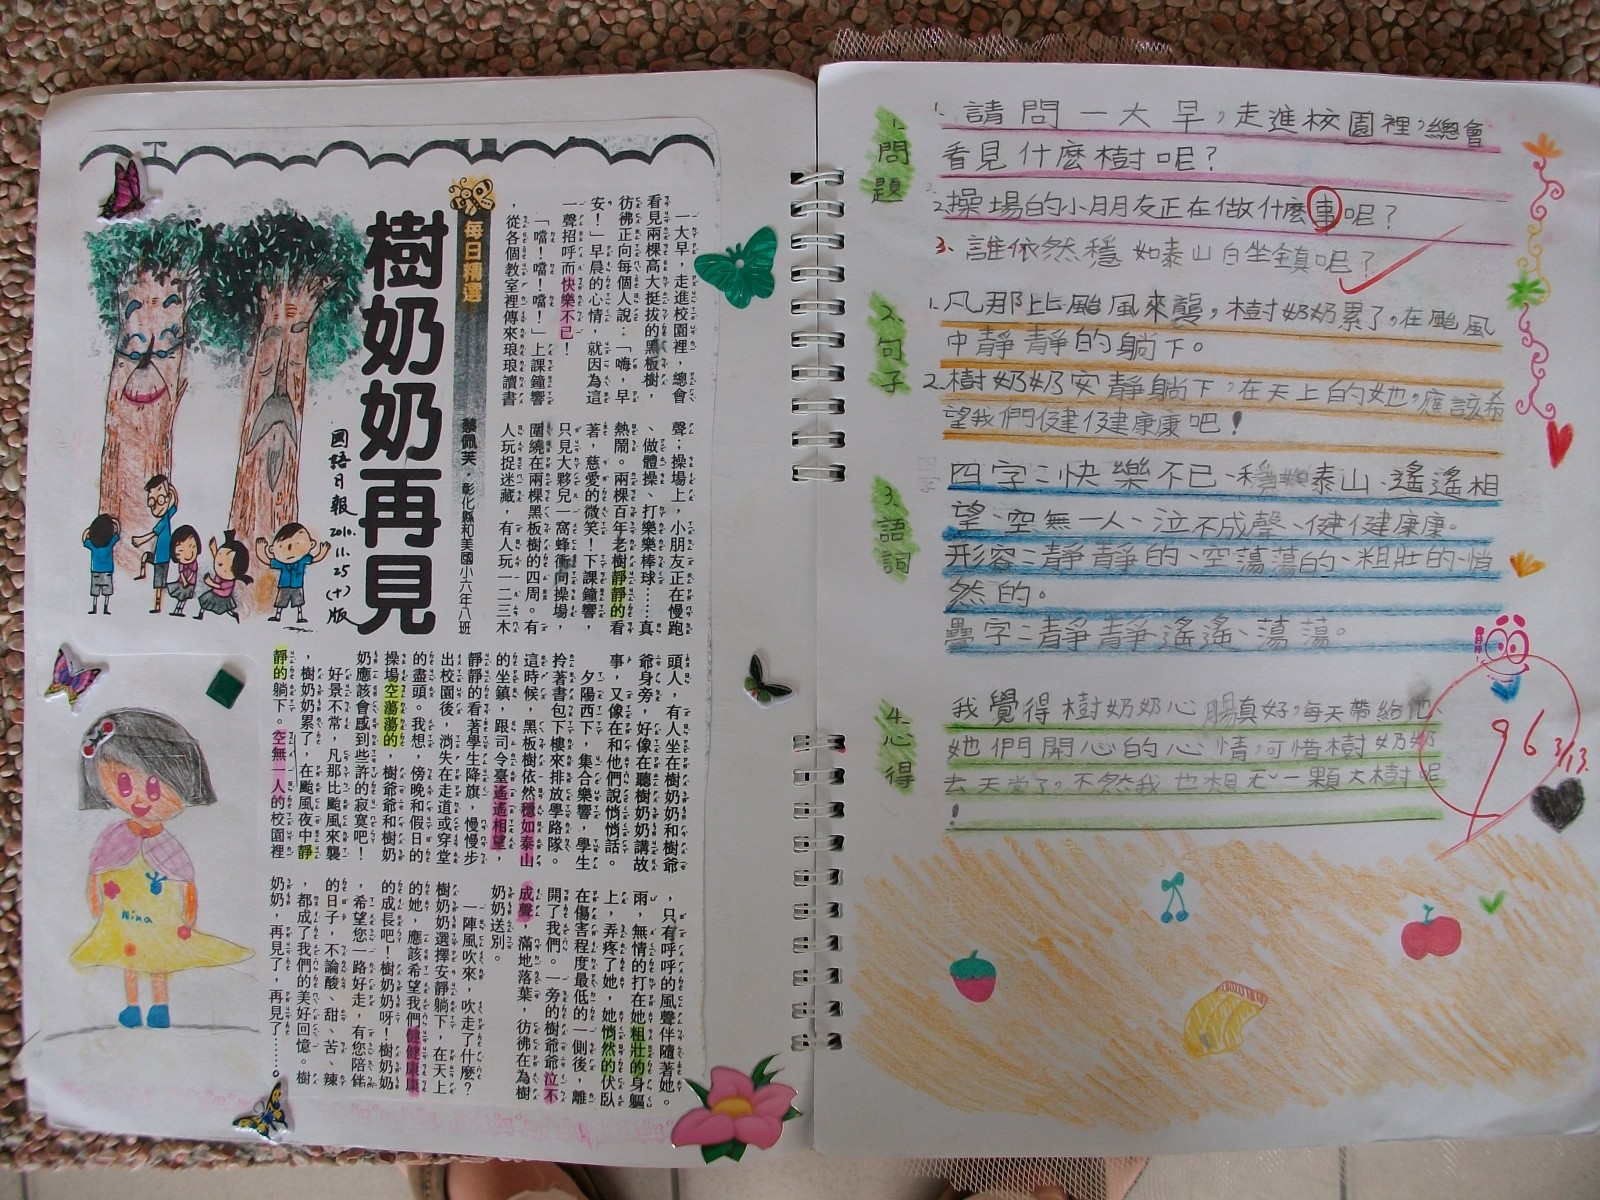 每日精選
樹奶奶再見
蔡佩芙．彰化縣和美國小六年八班
國語日報
2010.
11.25
(十)版
一大早，走進校園裡，總會
看見兩棵高大挺拔的黑板樹，
彷彿正向每個人說：「嗨，早
安！」早晨的心情，就因為這
一聲招呼而快樂不已！
「噹！噹！噹！」上課鐘響
，從各個教室裡傳來琅琅讀書
聲；操場上，小朋友正在慢跑
、做體操、打樂樂棒球……真
熱鬧。兩棵百年老樹靜靜的看
著，慈愛的微笑！下課鐘響，
只見大夥兒一窩蜂衝向操場，
圍繞在兩棵黑板樹的四周。有
人玩捉迷藏，有人玩一二三木
頭人，有人坐在樹奶奶和樹爺
爺身旁，好像在聽樹奶奶講故
事，又像在和他們說悄悄話。
夕陽西下，集合樂響，學生
拎著書包下樓來排放學路隊。
這時候，黑板樹依然穩如泰山
的坐鎮，跟司令臺遙遙相望，
靜靜的看著學生降旗，慢慢步
出校園後，消失在走道或穿堂
的盡頭。我想，傍晚和假日的
操場空蕩蕩的，樹爺爺和樹奶
奶應該會感到些許的寂寞吧！
好景不常，凡那比颱風來襲
，樹奶奶累了，在颱風夜中靜
靜的躺下。空無一人的校園裡
，只有呼呼的風聲伴隨著她。
雨，無情的打在她粗壯的身軀
上，弄疼了她，她悄然的伏臥
在傷害程度最低的一側後，離
開了我們。一旁的樹爺爺泣不
成聲，滿地落葉，彷彿在為樹
奶奶送別。
一陣風吹來，吹走了什麼？
樹奶奶選擇安靜躺下，在天上
的她，應該希望我們健健康康
的成長吧！樹奶奶呀！樹奶奶
，希望您一路好走，有您陪伴
的日子，不論酸、甜、苦、辣
，都成了我們的美好回憶。樹
奶奶，再見了，再見了……。
Nina
1.問題
1. 請問一大早，走進校園裡，總會
看見什麼樹呢？
2.操場的小朋友正在做什麼事呢？
3.誰依然穩如泰山白坐鎮呢？
2.句子
1.凡那比颱風來襲，樹奶奶累了，在颱風
中靜靜的躺下。
2.樹奶奶安靜躺下，在天上的她，應該希
望我們健健康康吧！
3.語詞
四字：快樂不已、穩如泰山、遙遙相
望、空無一人、泣不成聲、健健康康。
形容：靜靜的、空蕩蕩的、粗壯的、悄
然的。
疊字：靜靜、遙遙、蕩蕩。
4.心得
我覺得樹奶奶心腸真好，每天帶給他
她們開心的心情，可惜樹奶奶
去天堂了，不然我也想一顆大樹呢
！
96
3/13.